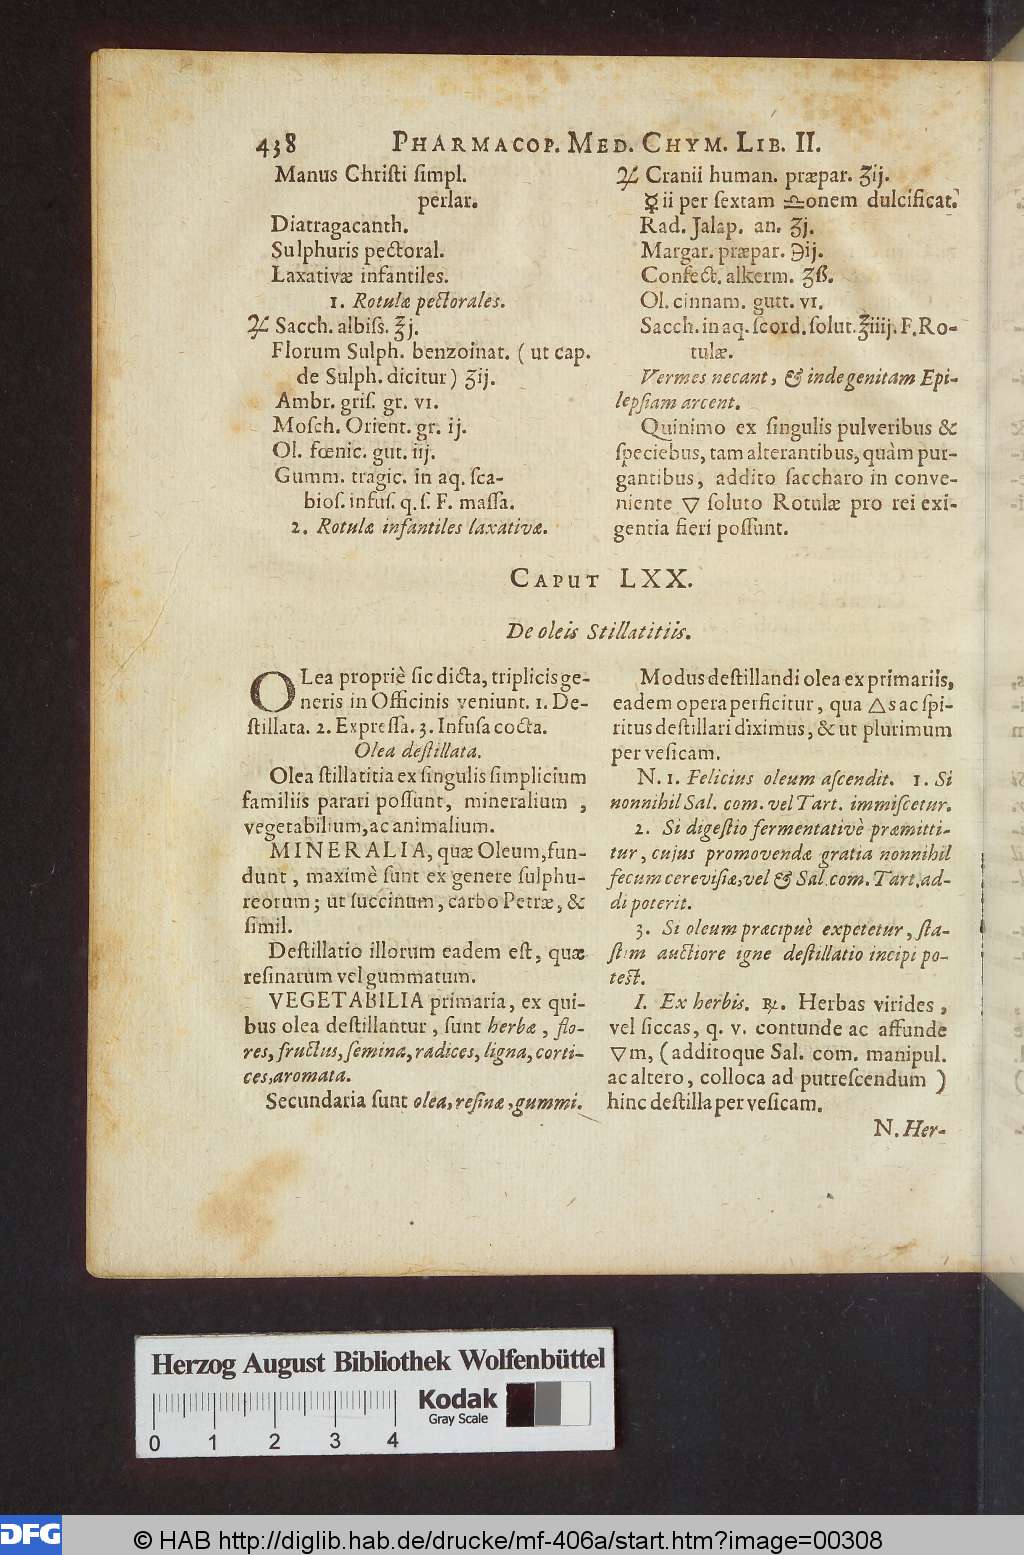 438 PHARMACOP. MED. CHYM. LIB. II.
Manus Chriſti ſimpl.
perlar.
Diatragacanth.
Sulphuris pectoral.
Laxativæ infantiles.
1. Rotulæ pectorales.
♃ Sacch. albiſs. ℥j.
Florum Sulph. benzoinat. ( ut cap.
de Sulph. dicitur ) ʒij.
Ambr. griſ. gr. vi.
Moſch. Orient. gr. ij.
Ol. fœnic. gut. iij.
Gumm. tragic. in aq. ſca-
bioſ. infuſ. q. ſ. F. maſſa.
2. Rotulæ infantiles laxativæ.
♃ Cranii human. præpar. ʒij.
☿ii per ſextam ♎onem dulcificat.
Rad. Jalap. an. ʒj.
Margar. præpar. ℈ij.
Confect. alkerm. ʒß.
Ol. cinnam. gutt. vi.
Sacch. in aq. ſcord. ſolut. ℥iiij. F. Ro-
tulæ.
Vermes necant, & inde genitam Epi-
lepſiam arcent.
Quinimo ex ſingulis pulveribus &
ſpeciebus, tam alterantibus, quàm pur-
gantibus, addito ſaccharo in conve-
niente 🜄 ſoluto Rotulæ pro rei exi-
gentia fieri poſſunt.
CAPUT LXX.
De oleis Stillatitiis.
OLea propriè ſic dicta, triplicis ge-
neris in Officinis veniunt. 1. De-
ſtillata. 2. Expreſſa. 3. Infuſa cocta.
Olea deſtillata.
Olea ſtillatitia ex ſingulis ſimplicium
familiis parari poſſunt, mineralium ,
vegetabilium, ac animalium.
MINERALIA, quæ Oleum, fun-
dunt , maximè ſunt ex genere ſulphu-
reorum ; ut ſuccinum , carbo Petræ, &
ſimil.
Deſtillatio illorum eadem eſt, quæ
reſinarum vel gummatum.
VEGETABILIA primaria, ex qui-
bus olea deſtillantur , ſunt herbæ , flo-
res, fructus, ſemina, radices, ligna, corti-
ces, aromata.
Secundaria ſunt olea, reſinæ , gummi.
Modus deſtillandi olea ex primariis,
eadem opera perficitur, qua 🜂s ac ſpi-
ritus deſtillari diximus, & ut plurimum
per veſicam.
N. 1. Felicius oleum aſcendit. 1. Si
nonnihil Sal. com. vel Tart. immiſcetur.
2. Si digeſtio fermentativè præmitti-
tur , cujus promovendæ gratia nonnihil
fecum cereviſiæ, vel & Sal. com. Tart. ad-
di poterit.
3. Si oleum præcipuè expetetur, ſta-
ſtim auctiore igne deſtillatio incipi po-
teſt.
I. Ex herbis. ℞. Herbas virides ,
vel ſiccas, q. v. contunde ac affunde
🜄m, ( additoque Sal. com. manipul.
ac altero, colloca ad putreſcendum )
hinc deſtilla per veſicam.
N. Her-
Herzog August Bibliothek Wolfenbüttel
Kodak
Gray Scale
0 1 2 3 4
DFG
© HAB http://diglib.hab.de/drucke/mf-406a/start.htm?image=00308